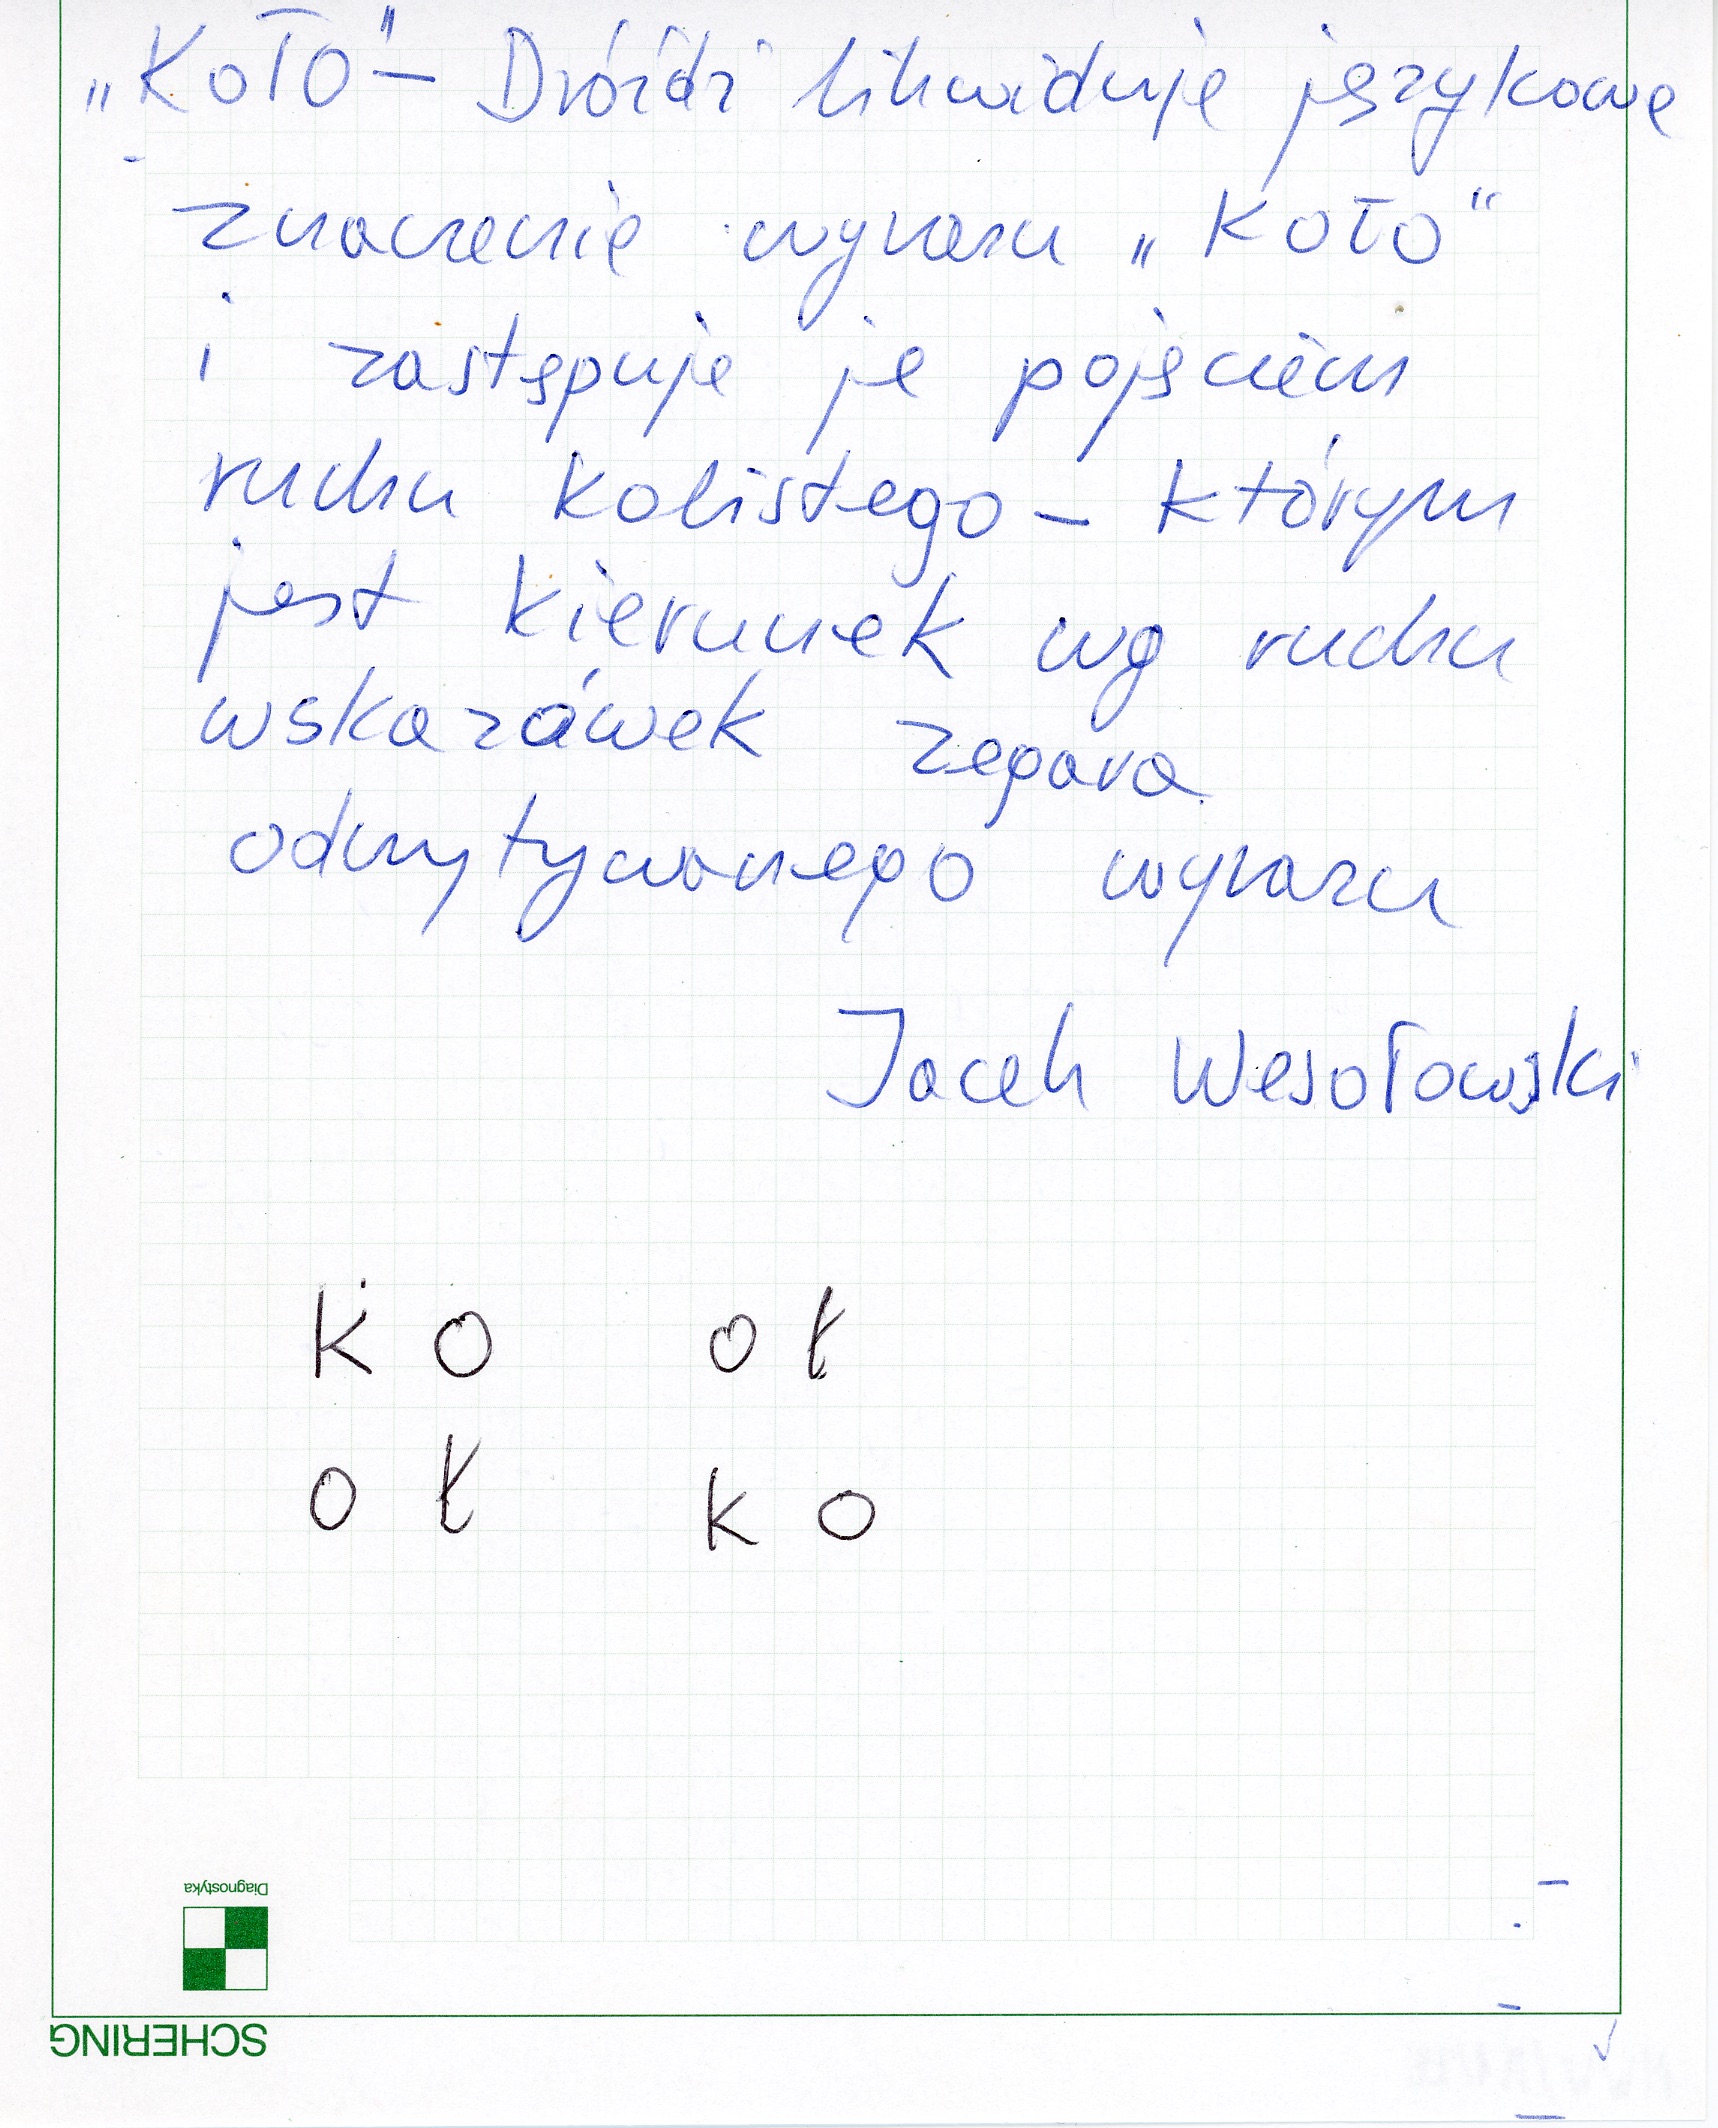 „Koło" – Dróżdż likwiduje językowe
znaczenie wyrazu „Koło"
i zastępuje je pojęciem
ruchu kolistego – którym
jest kierunek wg ruchu
wskazówek zegara
odczytywanego wyrazu
Jacek Wesołowski
k o   o ł
o ł   k o
Diagnostyka
SCHERING